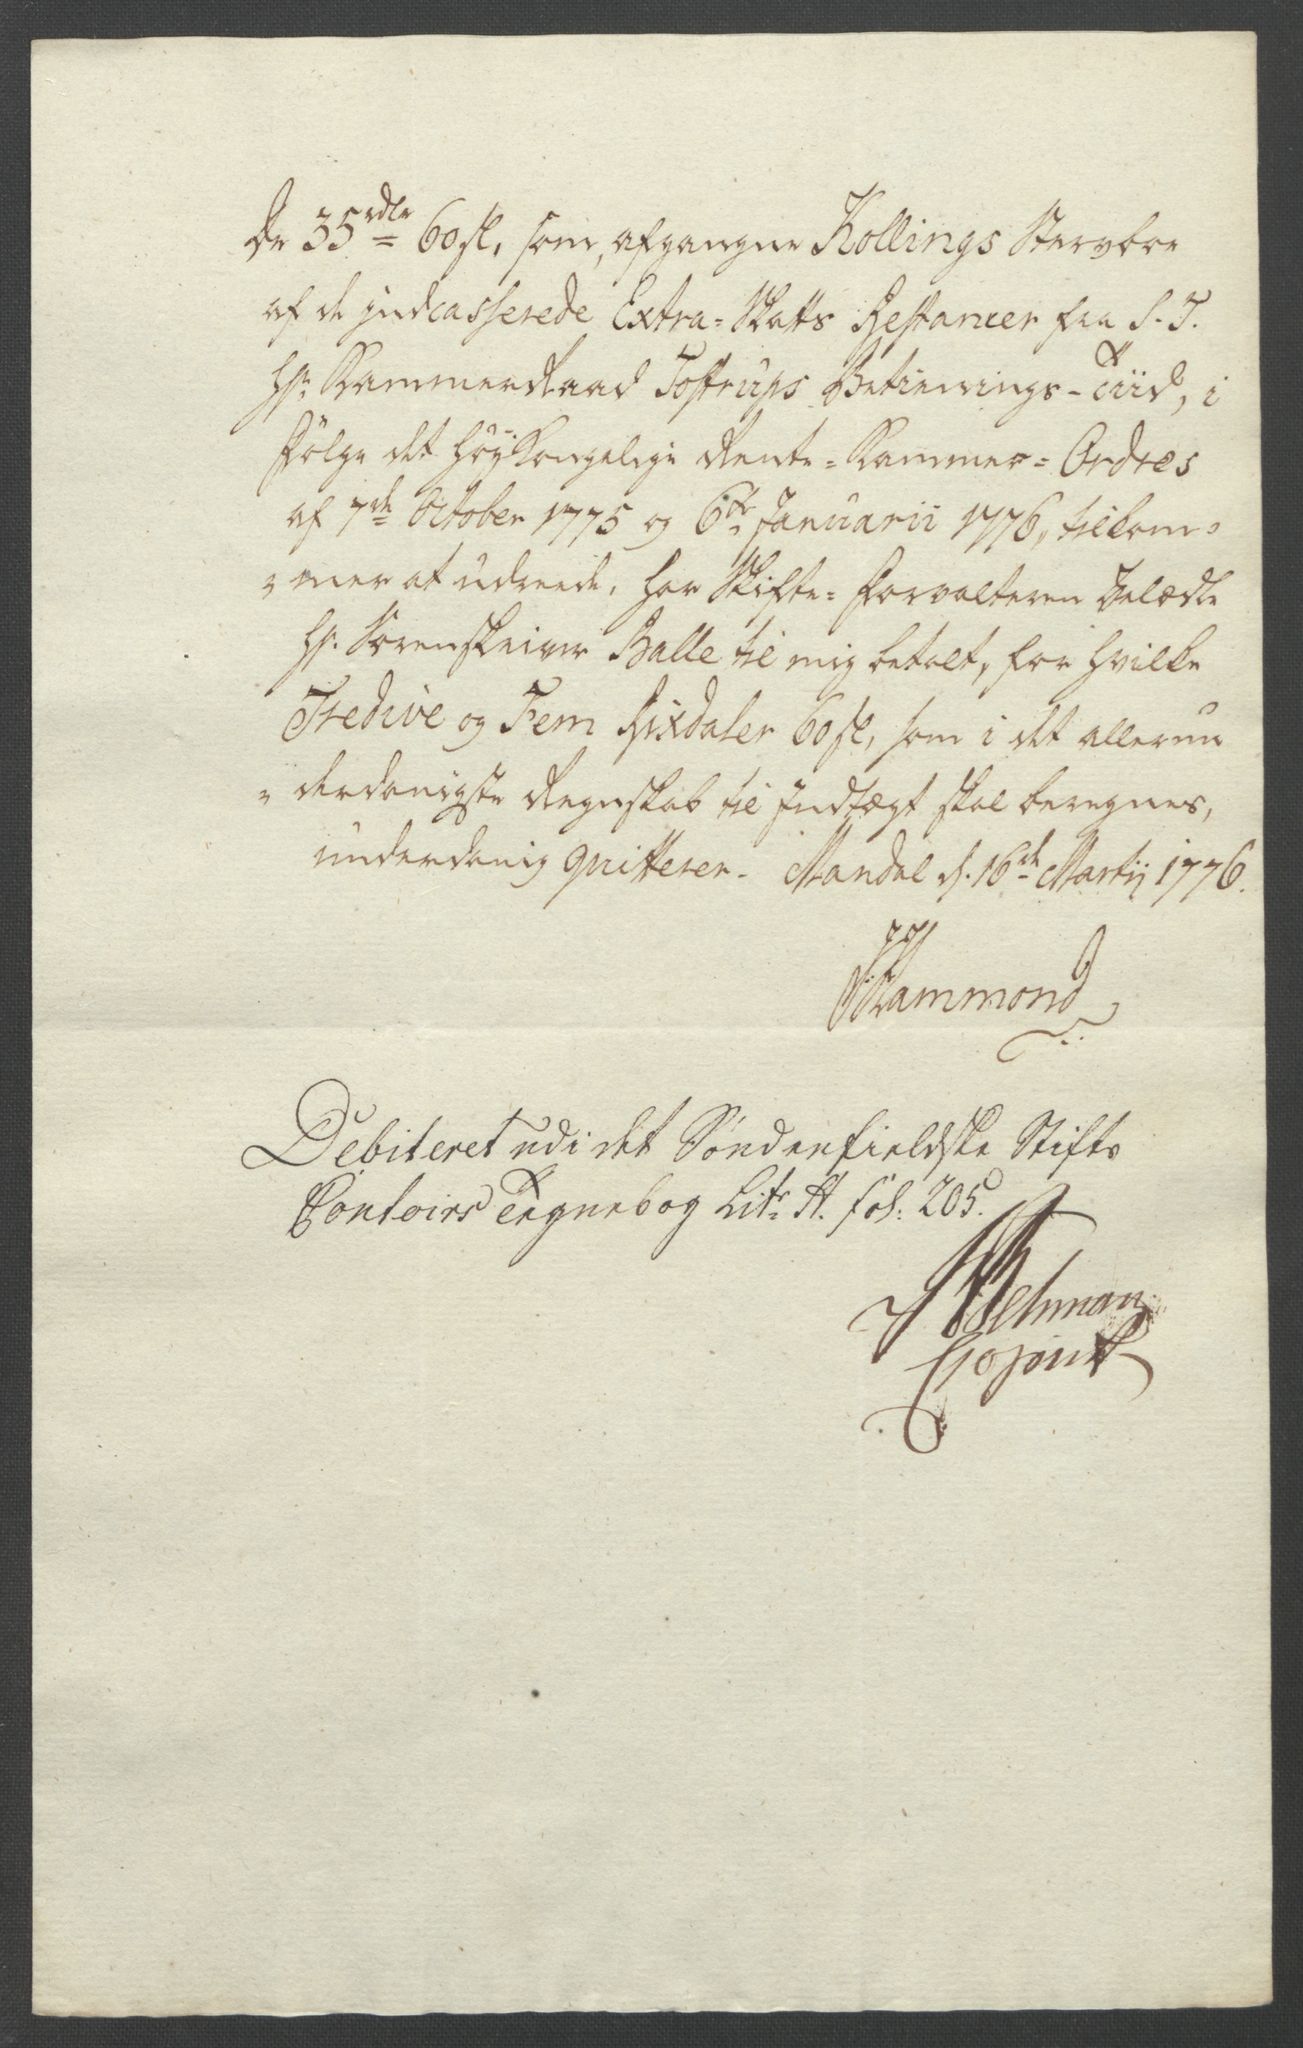 De 35 rdlr 60 sl, som, afgangne Kollings Sterboe
af de indcasserede Extra-Skatts Restancer fra S. T.
Hr. Kammerraad Tostrups Betienings-Tiid, i
Følge det Høy Kongelige Rente-Kammer-Ordres
af 7de October 1775 og 6te Januarii 1776, tilkom-
mer at udreede, har Skifte-Forvalteren Velædle
Hr. Sorenskriver Balle til mig betalt, for hvilke
Tredive og Fem Rixdaler 60 sl, som i det allerun
derdanigste Regnskab til Indtægt skal beregnes,
underdanig qvitterer. Mandal d. 16de Martij 1776.
Hammond
Debiteret udi det Søndenfieldske Stifts
Contoirs Tegnebog Litr A. fol: 205.